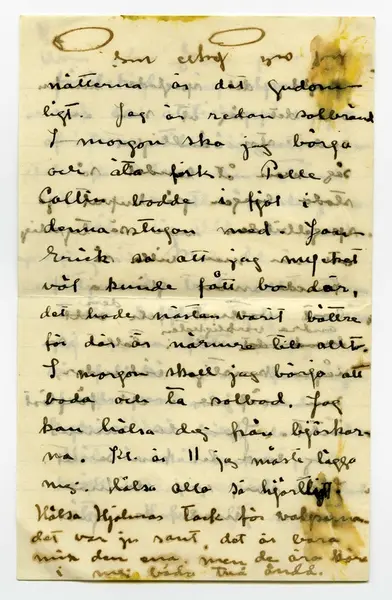 nätterna är det gudom-
ligt. Jag är redan solbränd
I morgon ska jag börja
och äta fisk. Pelle
Collin bodde i fjol i
denna stugon med. Jan
Erick sa att jag mycket
väl kunde fått bo där,
det hade nästan varit bättre
för där är närmare till allt.
I morgon skall jag börja att
bada och ta solbad. Jag
kan hälsa dej från björkar-
na. Kl. är 11 jag måste lägga
mej. Hälsa alla så hjärtligt.
Hälsa Hjalmar Tack för
det var ju sant, det är bara
min den ena, men de äro kära
i mej båda två ändå.